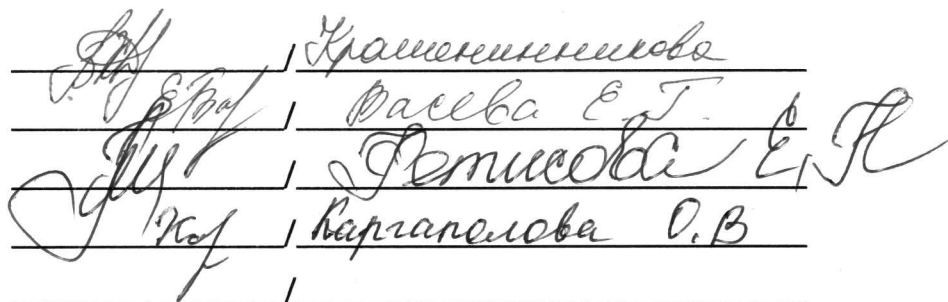 / Крашенинникова
/ Васева Е.Г.
/ Фетисова Е.Н
/ Каргаполова О.В
/